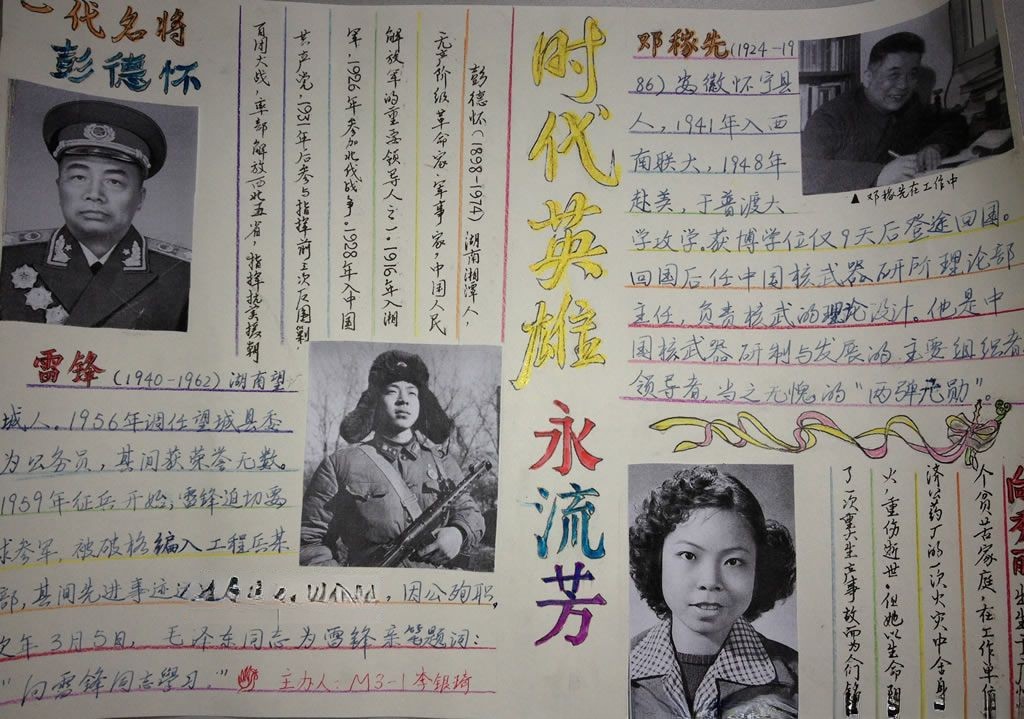 一代名将
彭德怀
彭德怀(1898-1974)湖南湘潭人,
无产阶级革命家、军事家,中国人民
解放军的重要领导人之一.1916年入湘
军.1926年参加北伐战争.1928年入中国
共产党.1931年后参与指挥前三次反围剿.
百团大战,率部解放西北五省,指挥抗美援朝
时代英雄
永流芳
雷锋(1940-1962)湖南望
城人。1956年调任望城县委
为公务员,其间获荣誉元数。
1959年征兵开始,雷锋迫切要
求参军,被破格编入工程兵某
部,其间先进事迹 ,因公殉职,
次年3月5日,毛泽东同志为雷锋亲笔题词:
"向雷锋同志學习."
主办人:M3-1李银琦
邓稼先(1924-19
86)安徽怀宁县
人,1941年入西
南联大,1948年
赴美,于普渡大
学攻学.获博学位仅9天后登途回国。
回国后任中国核武器研所理论部
主任,负责核武的理论设计。他是中
国核武器研制与发展的主要组织者
领导者,当之无愧的"两弹元勋"。
▲邓稼先在工作中
向秀丽
出生于广州
个贫苦家庭.在工作单位
济药厂的一次火灾中舍身
火.重伤逝世.但她以生命
了一次重大生产事故而为人们